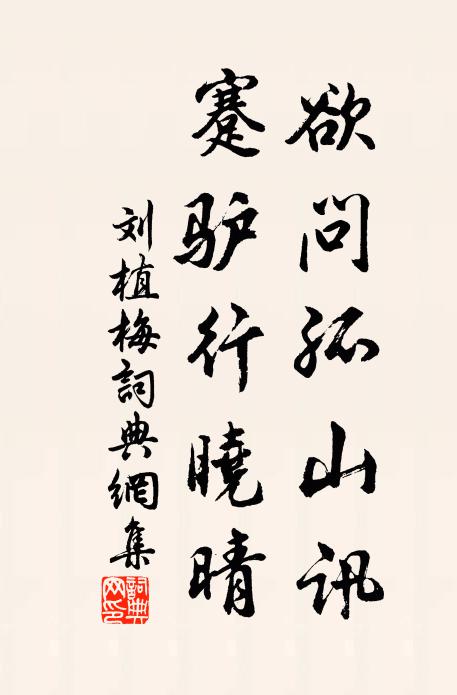 欲问孤山訊
蹇驴行曉晴
刘植梅詞典網集
詞典网印